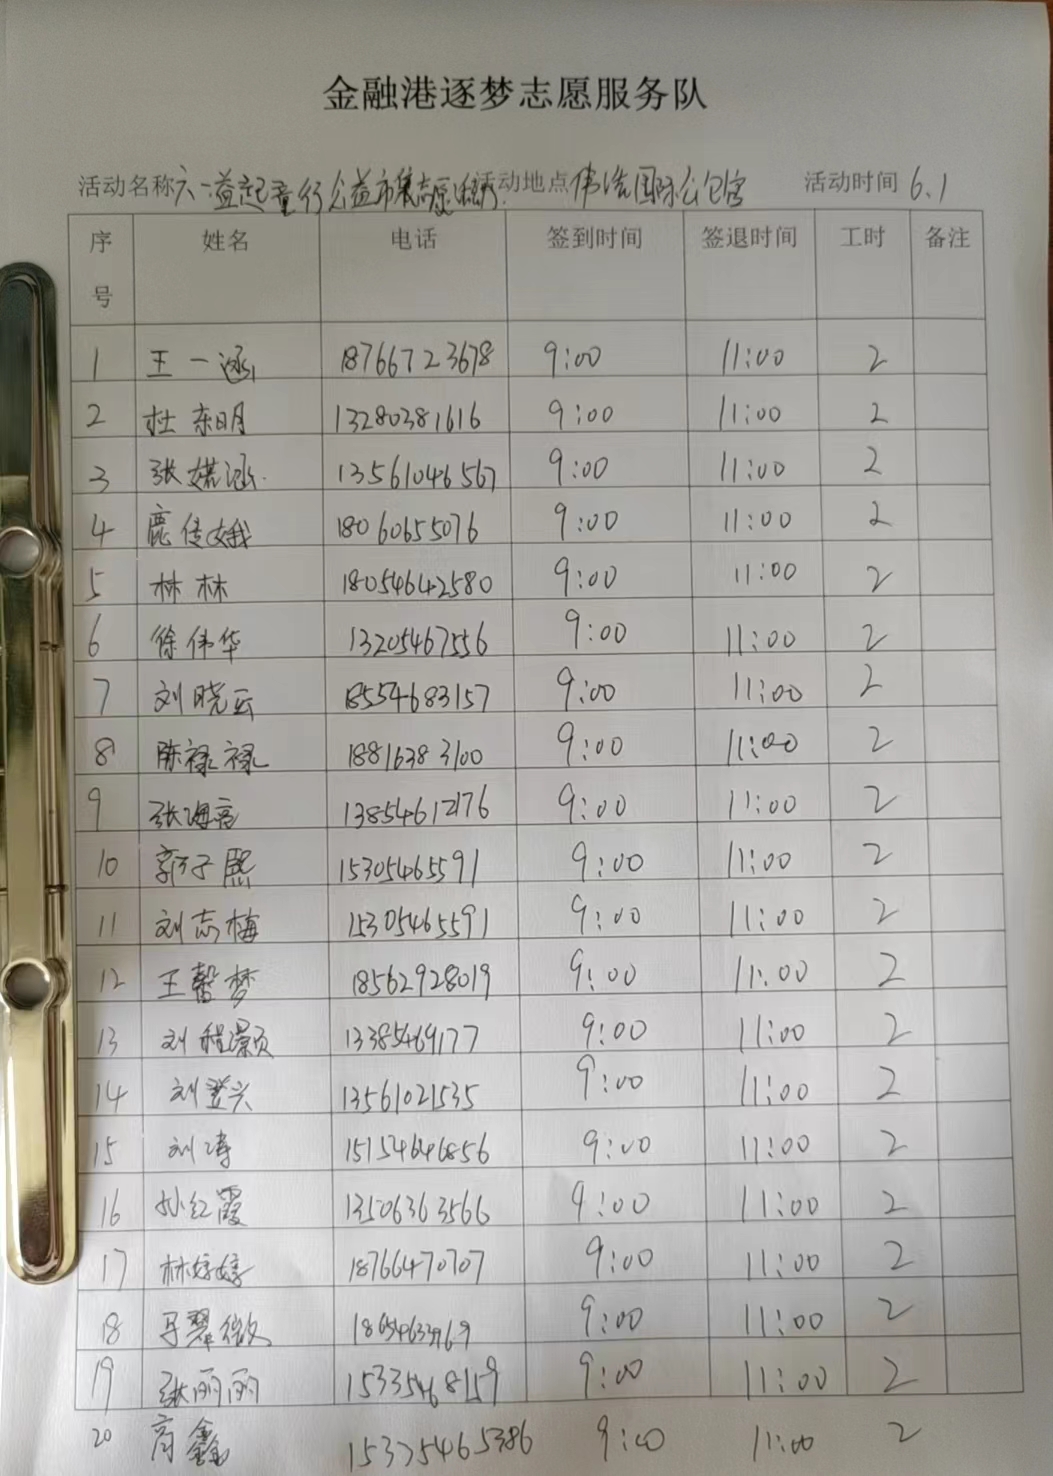 金融港逐梦志愿服务队
活动名称 六一益起童行公益市集志愿活动 活动地点 伟浩国际公寓 活动时间 6.1
序号 姓名 电话 签到时间 签退时间 工时 备注
1 王一涵 18766723678 9:00 11:00 2
2 杜东明 13280381616 9:00 11:00 2
3 张媤涵 13561046567 9:00 11:00 2
4 鹿传娥 18060655076 9:00 11:00 2
5 林林 18054642580 9:00 11:00 2
6 徐伟华 13205467556 9:00 11:00 2
7 刘晓云 18554683157 9:00 11:00 2
8 陈禄禄 18816383100 9:00 11:00 2
9 张海亮 13854612176 9:00 11:00 2
10 郭子熙 15305465591 9:00 11:00 2
11 刘志梅 15305465591 9:00 11:00 2
12 王馨梦 18562928019 9:00 11:00 2
13 刘程灏 13385469177 9:00 11:00 2
14 刘登兴 13561021535 9:00 11:00 2
15 刘涛 15154646856 9:00 11:00 2
16 孙红霞 13506363566 9:00 11:00 2
17 林婷婷 18766470707 9:00 11:00 2
18 马翠微 9:00 11:00 2
19 张丽丽 15335468159 9:00 11:00 2
20 商鑫 15375465386 9:00 11:00 2